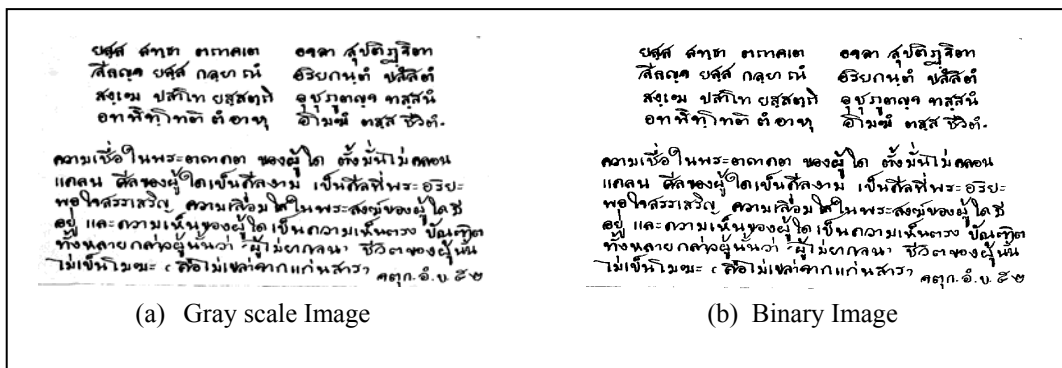 ยสฺส สทฺธา ตถาคเต อจลา สุปติฏฺฐิตา
สีลญฺจ ยสฺส กลฺยาณํ อริยกนฺตํ ปสํสิตํ
สงฺเฆ ปสาโท ยสฺสตฺถิ อุชุภูตญฺจ ทสฺสนํ
อทฬิทฺโทติ ตํ อาหุ อโมฆํ ตสฺส ชีวิตํ.
ความเชื่อในพระตถาคต ของผู้ใด ตั้งมั่นไม่คลอน
แคลน ศีลของผู้ใดเป็นศีลงาม เป็นศีลที่พระอริยะ
พอใจสรรเสริญ ความเลื่อมใสในพระสงฆ์ของผู้ใดมี
อยู่ และความเห็นของผู้ใดเป็นความเห็นตรง บัณฑิต
ทั้งหลายกล่าวผู้นั้นว่า "ผู้ไม่ยากจน" ชีวิตของผู้นั้น
ไม่เป็นโมฆะ (คือไม่เปล่าจากแก่นสาร)
จตุก. อํ.
(a) Gray scale Image
ยสฺส สทฺธา ตถาคเต อจลา สุปติฏฺฐิตา
สีลญฺจ ยสฺส กลฺยาณํ อริยกนฺตํ ปสํสิตํ
สงฺเฆ ปสาโท ยสฺสตฺถิ อุชุภูตญฺจ ทสฺสนํ
อทฬิทฺโทติ ตํ อาหุ อโมฆํ ตสฺส ชีวิตํ.
ความเชื่อในพระตถาคต ของผู้ใด ตั้งมั่นไม่คลอน
แคลน ศีลของผู้ใดเป็นศีลงาม เป็นศีลที่พระอริยะ
พอใจสรรเสริญ ความเลื่อมใสในพระสงฆ์ของผู้ใดมี
อยู่ และความเห็นของผู้ใดเป็นความเห็นตรง บัณฑิต
ทั้งหลายกล่าวผู้นั้นว่า "ผู้ไม่ยากจน" ชีวิตของผู้นั้น
ไม่เป็นโมฆะ (คือไม่เปล่าจากแก่นสาร)
จตุก. อํ.
(b) Binary Image